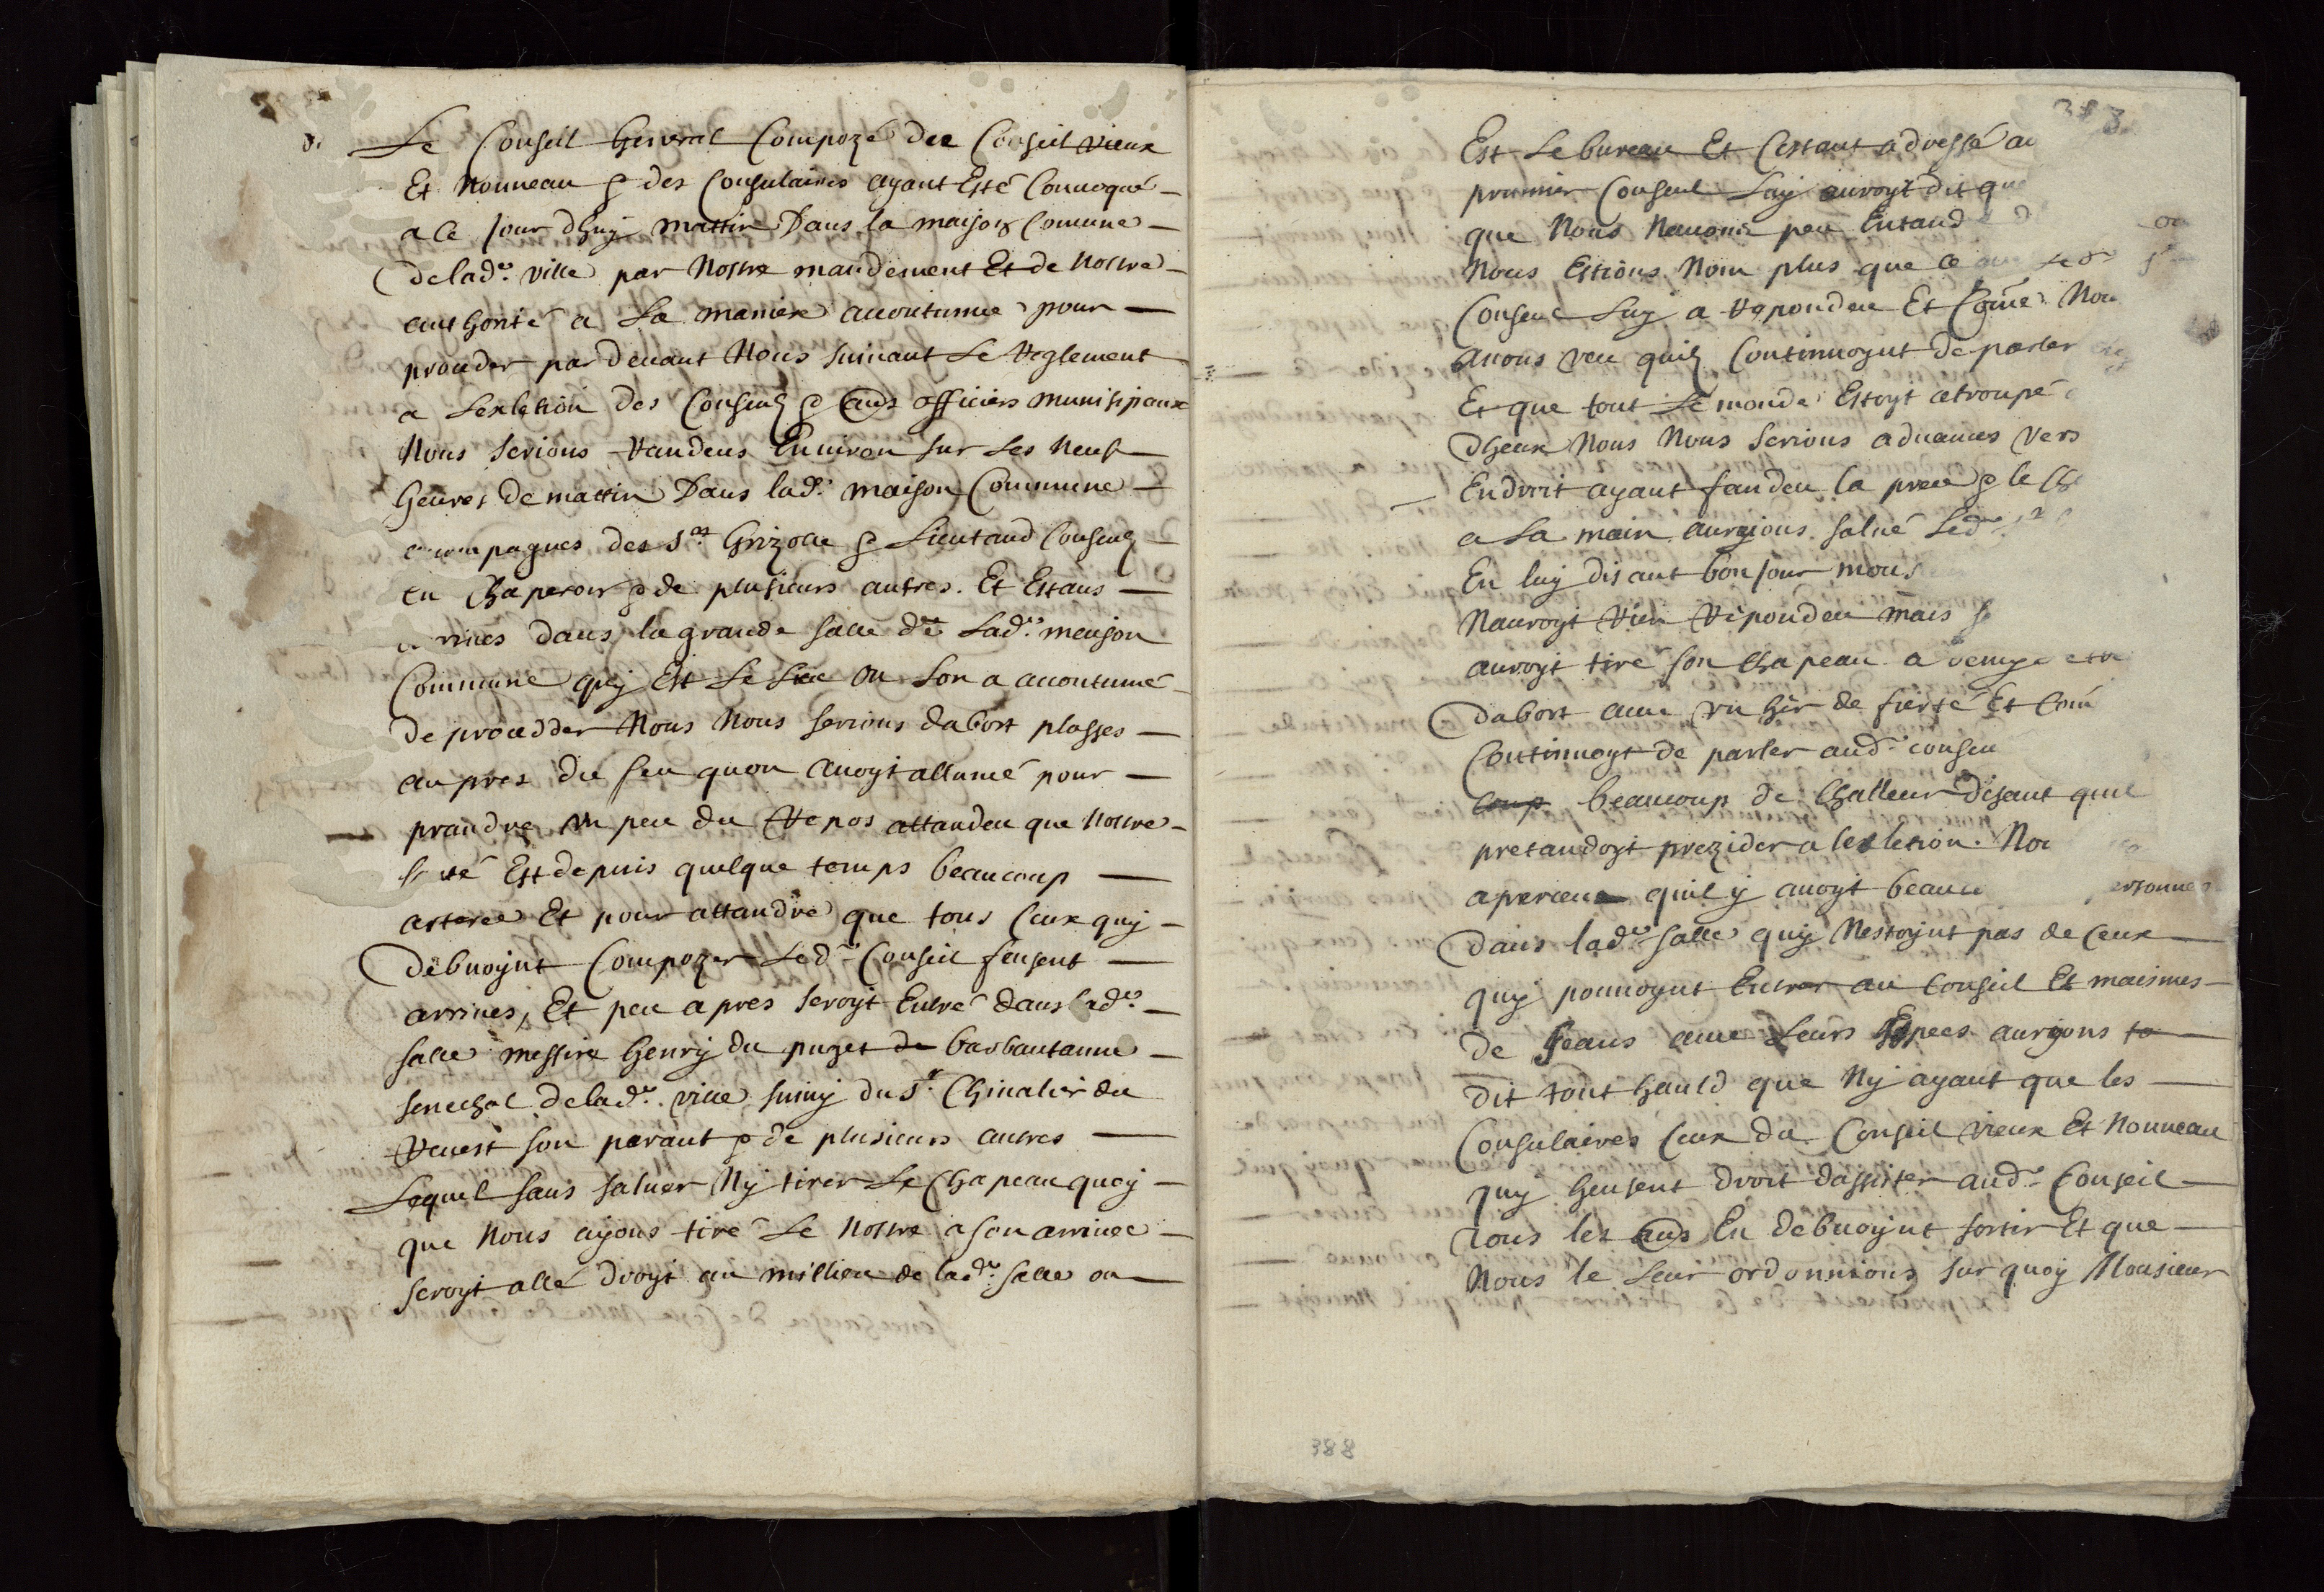 Le Conseil General Compozé des Conseil vieux
Et Nouveau & des Consulaires ayant Esté Convoqué
a Ce Jour dhuy mattin Dans la maison Comune
de lad.e ville par Nostre mandement Et de Nostre
authorité a La maniere acoutumee pour
proceder par devant Nous suivant Le Reglement
a Lexletion des Conseuls & aus officiers munisipaux
Nous serions Randeus Environ sur Les neuf
heures de mattin Dans lad.e maison Commune
acompagnes des s.rs Grizolle & Lieutaud Conseuls
en Chaperon & de plusieurs autres. Et Estans
arrives dans la grande salle de Lad.e meuson
Commune quy Est Le Lieu ou Lon a acoutumé
de procedder Nous Nous serions dabort plasses
au pres du feu quon avoyt allumé pour
prandre un peu du Repos attandeu que Nostre
santé Est depuis quelque temps beaucoup
alteree Et pour attandre que tous Ceux quy
debvoynt Compozer Led. Conseil feusent
arrives, Et peu a pres seroyt Entré dans lad.e
salle messire henry du puget de barbantanne
senechal de lad.e ville suivy du s.r Chivalier du
Revest son parant & de plusieurs autres
Lequel sans saluer Ny tirer Le Chapeau quoy
que Nous ayons tiré Le Nostre a son arrivee
seroyt allé droyt au millieu de lad.e salle ou
383
Est Le bureau Et Cestant adressé au
premier Conseul Luy auroyt dit que
que Nous Navons peu Entand
Nous Estions Nom plus que Ce que led.
Conseul Luy a Reponden Et Comme Nou
avons veu quils Continuoynt de parler
Et que tout Le monde Estoyt atroupé
dheux Nous Nous serions advances vers
Endroit ayant fandeu la prece & le Ch
a La main auryions salué Led.
En luy disant bon Jour mons
Nauroyt Rien Reponden mais
auroyt tiré son Chapeau a demy
dabort avec un hir de fierté Et Com
Continuoyt de parler aud. conseu
beaucoup de Challeur disant quil
pretandoyt prezider a lexletion. Nou
aperceu quil y avoyt beauco personnes
dans lad.e salle quy Nestoynt pas de Ceux
quy pouvoynt Entrer au Conseil Et maismes
de Jeans avec Leurs Espees auryons
dit tout hauld que Ny ayant que les
Consulaires Ceux du Conseil vieux Et Nouveau
quy heusent droit dassister aud. Conseil
tous les aus En debvoynt sortir Et que
Nous le Leur ordonnions sur quoy Monsieur
388